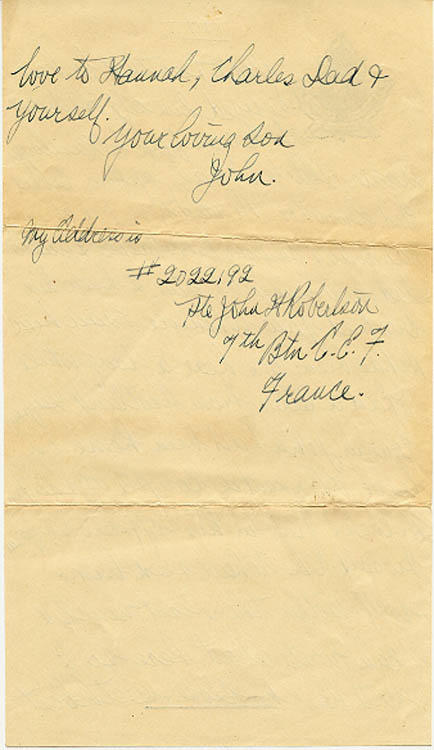 love to Hannah, Charles Dad &
yourself.
your loving son
John.
My Address is
# 2022192
Pte John H Robertson
7th Btn C.E.F.
France.